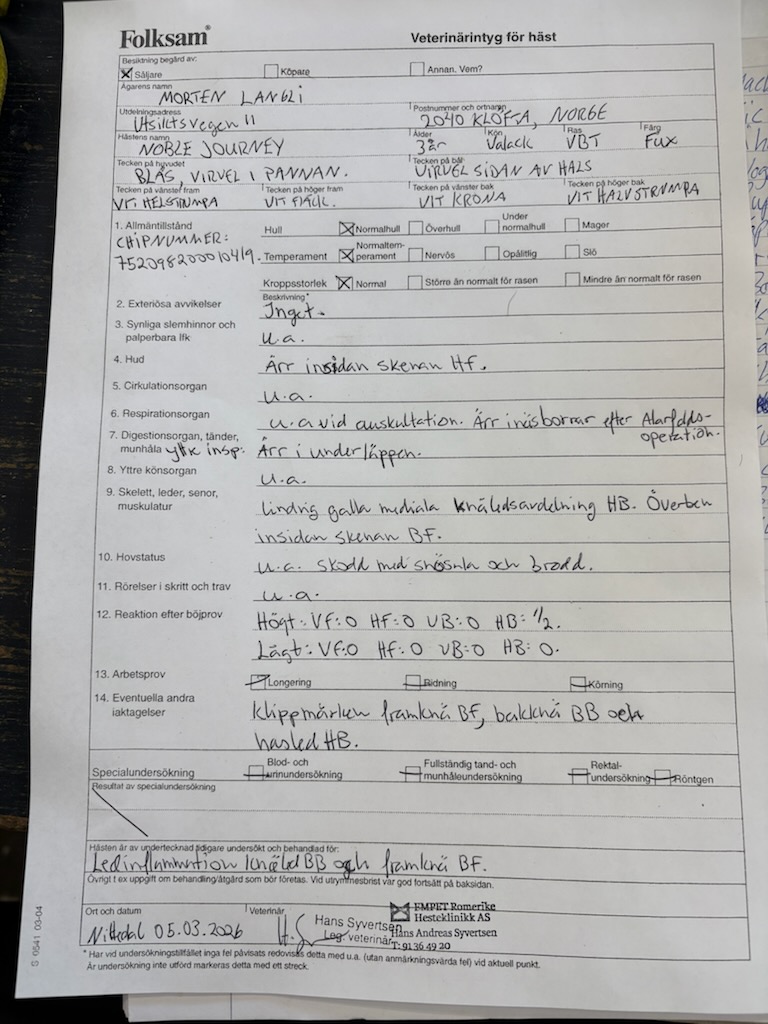 Folksam®
Veterinärintyg för häst
Besiktning begärd av:
Säljare Köpare Annan. Vem?
Ägarens namn
MORTEN LANGLI
Utdelningsadress Postnummer och ortnamn
Utsiktsvegen 11 2040 KLØFTA, NORGE
Hästens namn Ålder Kön Ras Färg
NOBLE JOURNEY 3år Valack VBT Fux
Tecken på huvudet Tecken på bål
BLÄS, VIRVEL I PANNAN. VIRVEL SIDAN AV HALS
Tecken på vänster fram Tecken på höger fram Tecken på vänster bak Tecken på höger bak
VIT HELSTRUMPA VIT FLÄCK. VIT KRONA VIT HALVSTRUMPA
1. Allmäntillstånd Hull Normalhull Överhull Under normalhull Mager
CHIPNUMMER:
752098200010419. Temperament Normaltemperament Nervös Opålitlig Slö
Kroppsstorlek Normal Större än normalt för rasen Mindre än normalt för rasen
Beskrivning*
2. Exteriösa avvikelser Inget.
3. Synliga slemhinnor och
palperbara lfk u.a.
4. Hud Ärr insidan skenan HF.
5. Cirkulationsorgan u.a.
6. Respirationsorgan u.a vid auskultation. Ärr i näsborrar efter Alarfolds-
operation.
7. Digestionsorgan, tänder,
munhåla yttr insp: Ärr i underläppen.
8. Yttre könsorgan u.a.
9. Skelett, leder, senor,
muskulatur lindrig galla mediala knäledsavdelning HB. Överben
insidan skenan BF.
10. Hovstatus u.a. skodd med snösula och brodd.
11. Rörelser i skritt och trav u.a.
12. Reaktion efter böjprov Högt: VF:0 HF:0 VB:0 HB: 1/2.
Lågt: VF:0 HF:0 VB:0 HB: 0.
13. Arbetsprov Longering Ridning Körning
14. Eventuella andra
iaktagelser Klippmärken framknä BF, bakknä BB och
hasled HB.
Specialundersökning Blod- och urinundersökning Fullständig tand- och munhåleundersökning Rektal-undersökning Röntgen
Resultat av specialundersökning
Hästen är av undertecknad tidigare undersökt och behandlad för:
Ledinflammation knäled BB och framknä BF.
Övrigt t ex uppgift om behandling/åtgärd som bör företas. Vid utrymmesbrist var god fortsätt på baksidan.
Ort och datum Veterinär
EMPET Romerike
Hesteklinikk AS
Nittedal 05.03.2026 Hans Syvertsen
Leg. veterinær
Hans Andreas Syvertsen
T: 91 36 49 20
* Har vid undersökningstillfället inga fel påvisats redovisas detta med u.a. (utan anmärkningsvärda fel) vid aktuell punkt.
Är undersökning inte utförd markeras detta med ett streck.
S 0541 03-04